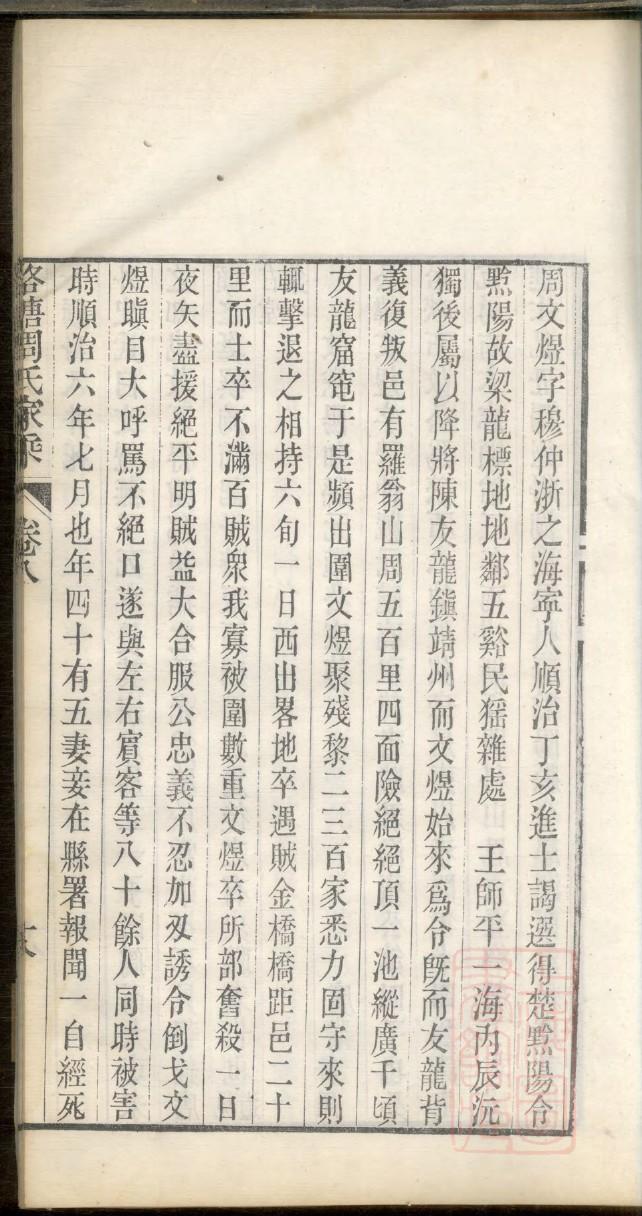 周文煜字穆仲浙之海寧人順治丁亥進士謁選得楚黔陽令
黔陽故梁龍標地地鄰五谿民猺雜處 王師平一海內辰沅
獨後屬以降將陳友龍鎮靖州而文煜始來爲令旣而友龍背
義復叛邑有羅翁山周五百里四面險絕絕頂一池縱廣千頃
友龍窟竄于是頻出圍文煜聚殘黎二三百家悉力固守來則
輒擊退之相持六旬一日西出畧地卒遇賊金橋橋距邑二十
里而士卒不滿百賊衆我寡被圍數重文煜卒所部奮殺一日
夜矢盡援絕平明賊益大合服公忠義不忍加刃誘令倒戈文
煜瞋目大呼罵不絕口遂與左右賓客等八十餘人同時被害
時順治六年七月也年四十有五妻妾在縣署報聞一自經死
洛塘周氏家乘 卷八